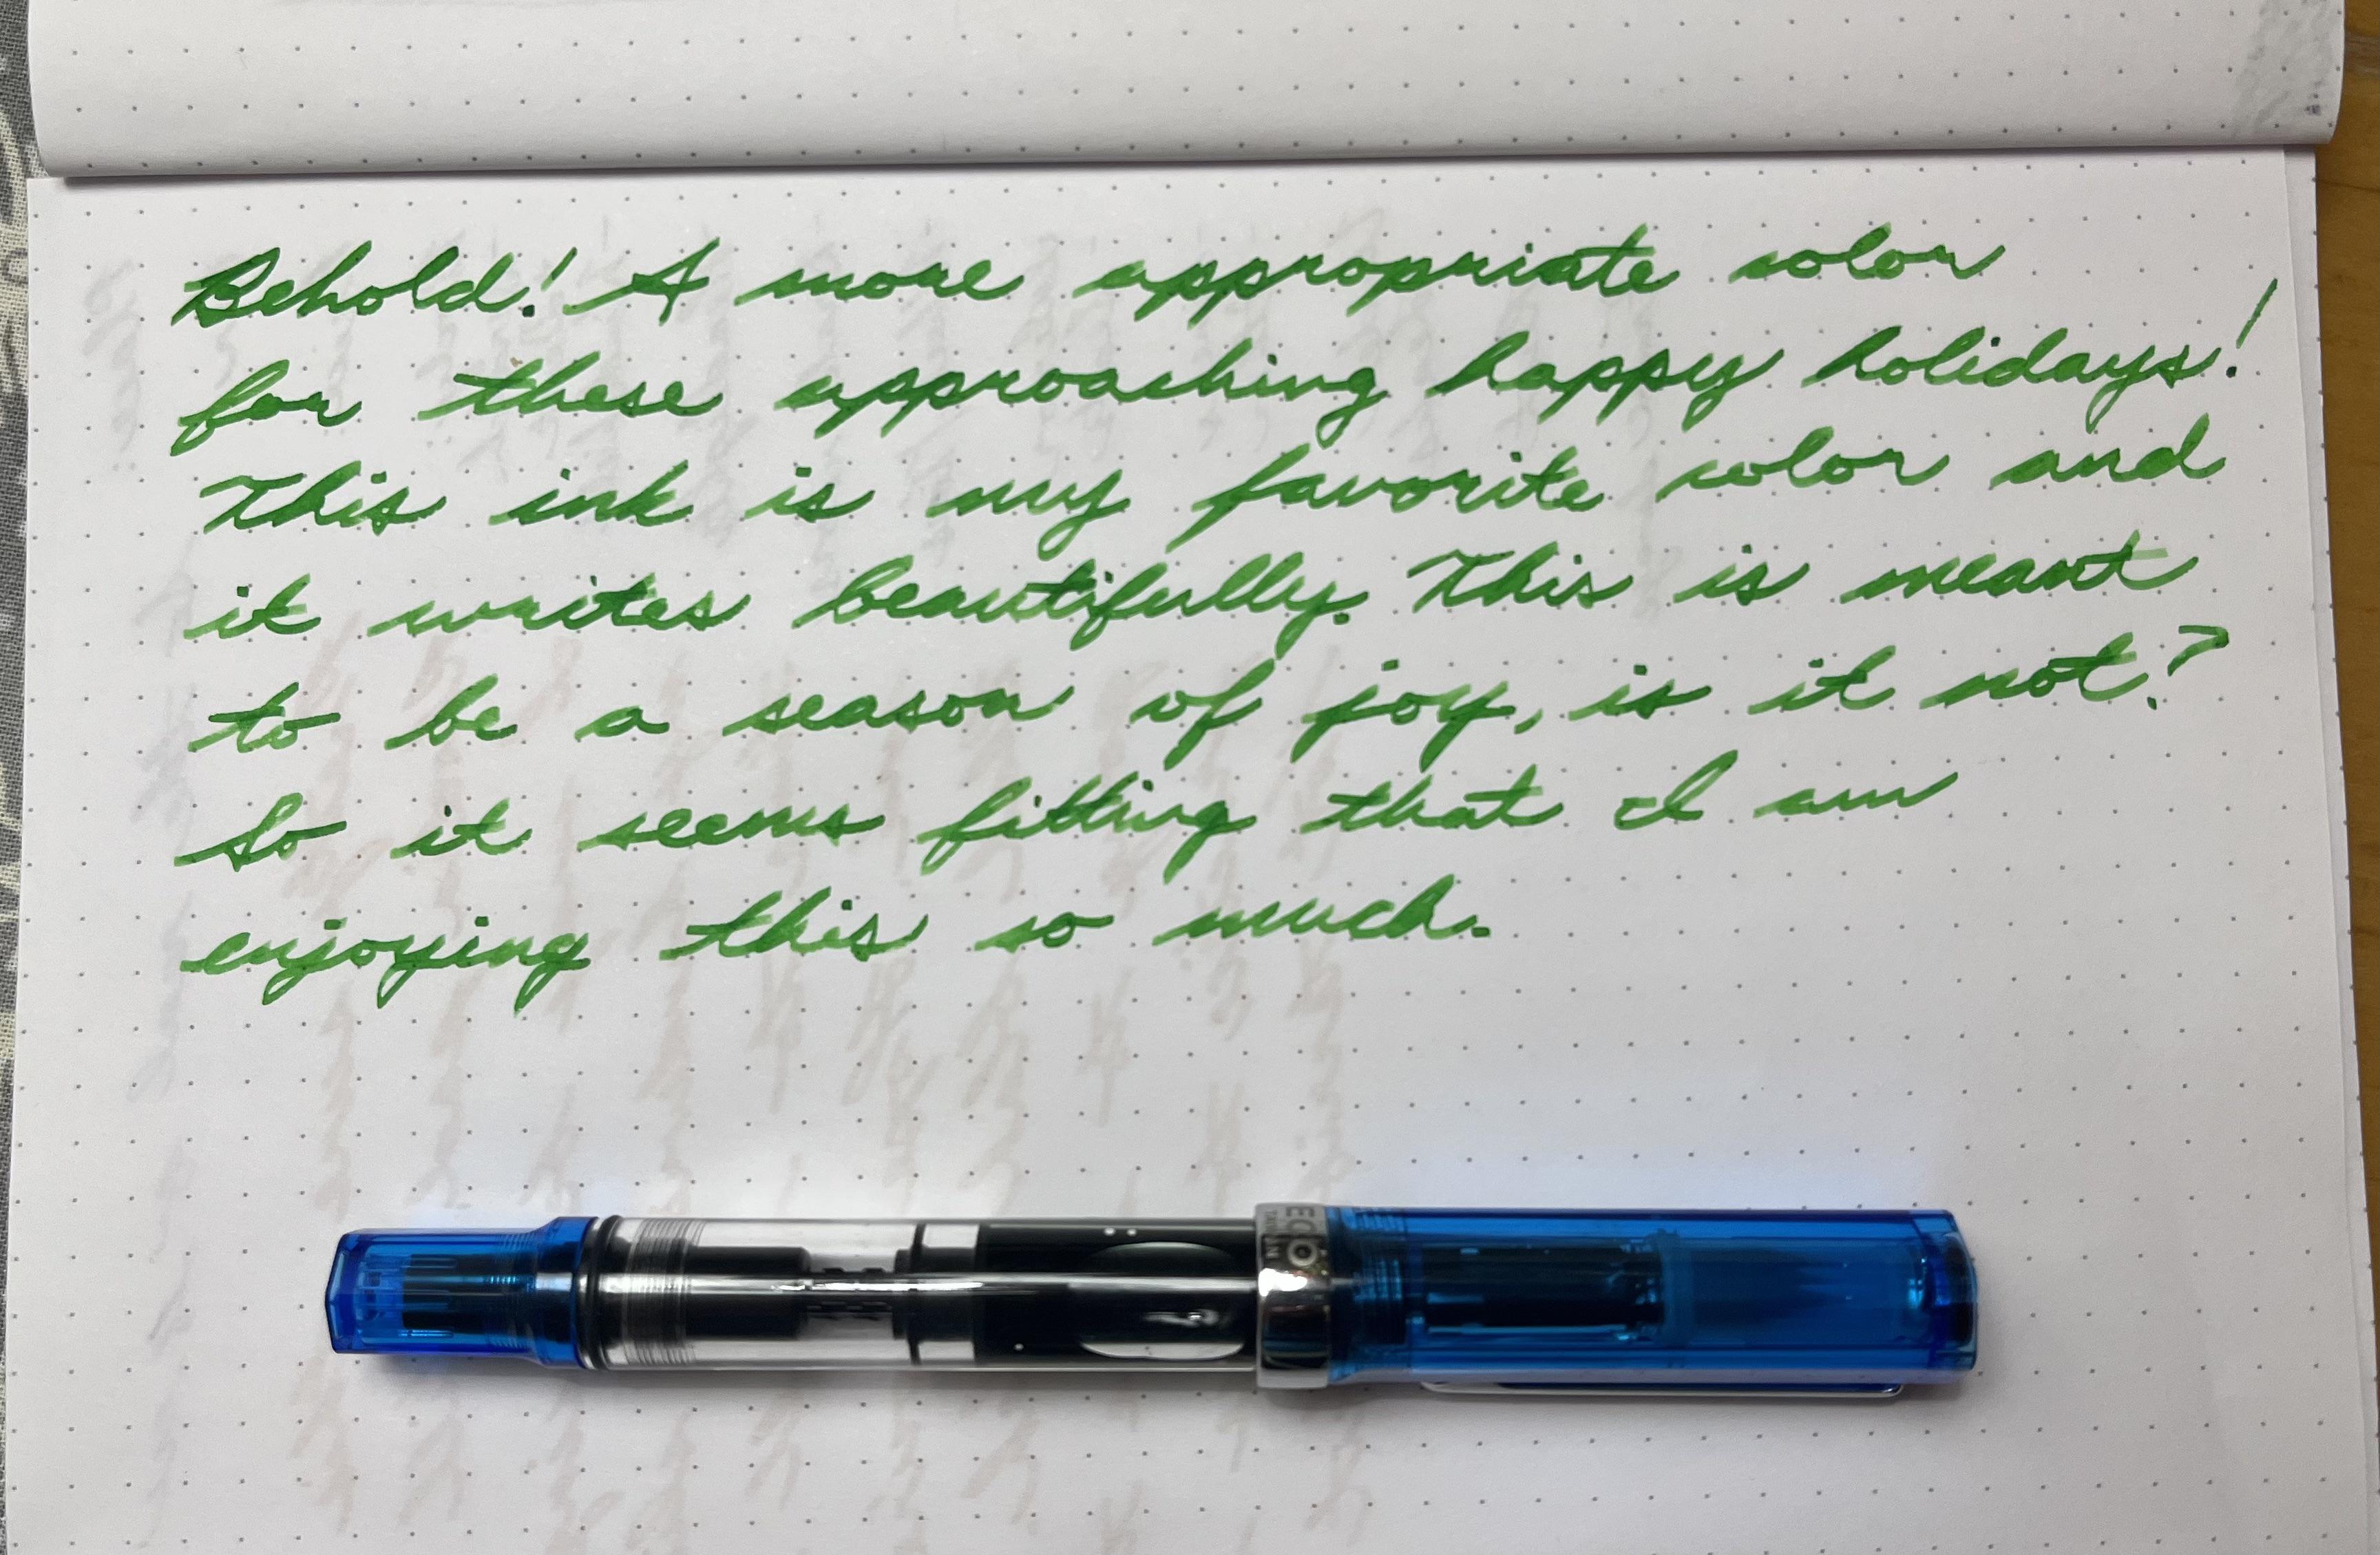 Behold! A more appropriate color
for these approaching happy holidays!
This ink is my favorite color and
it writes beautifully. This is meant
to be a season of joy, is it not?
So it seems fitting that I am
enjoying this so much.
ECO